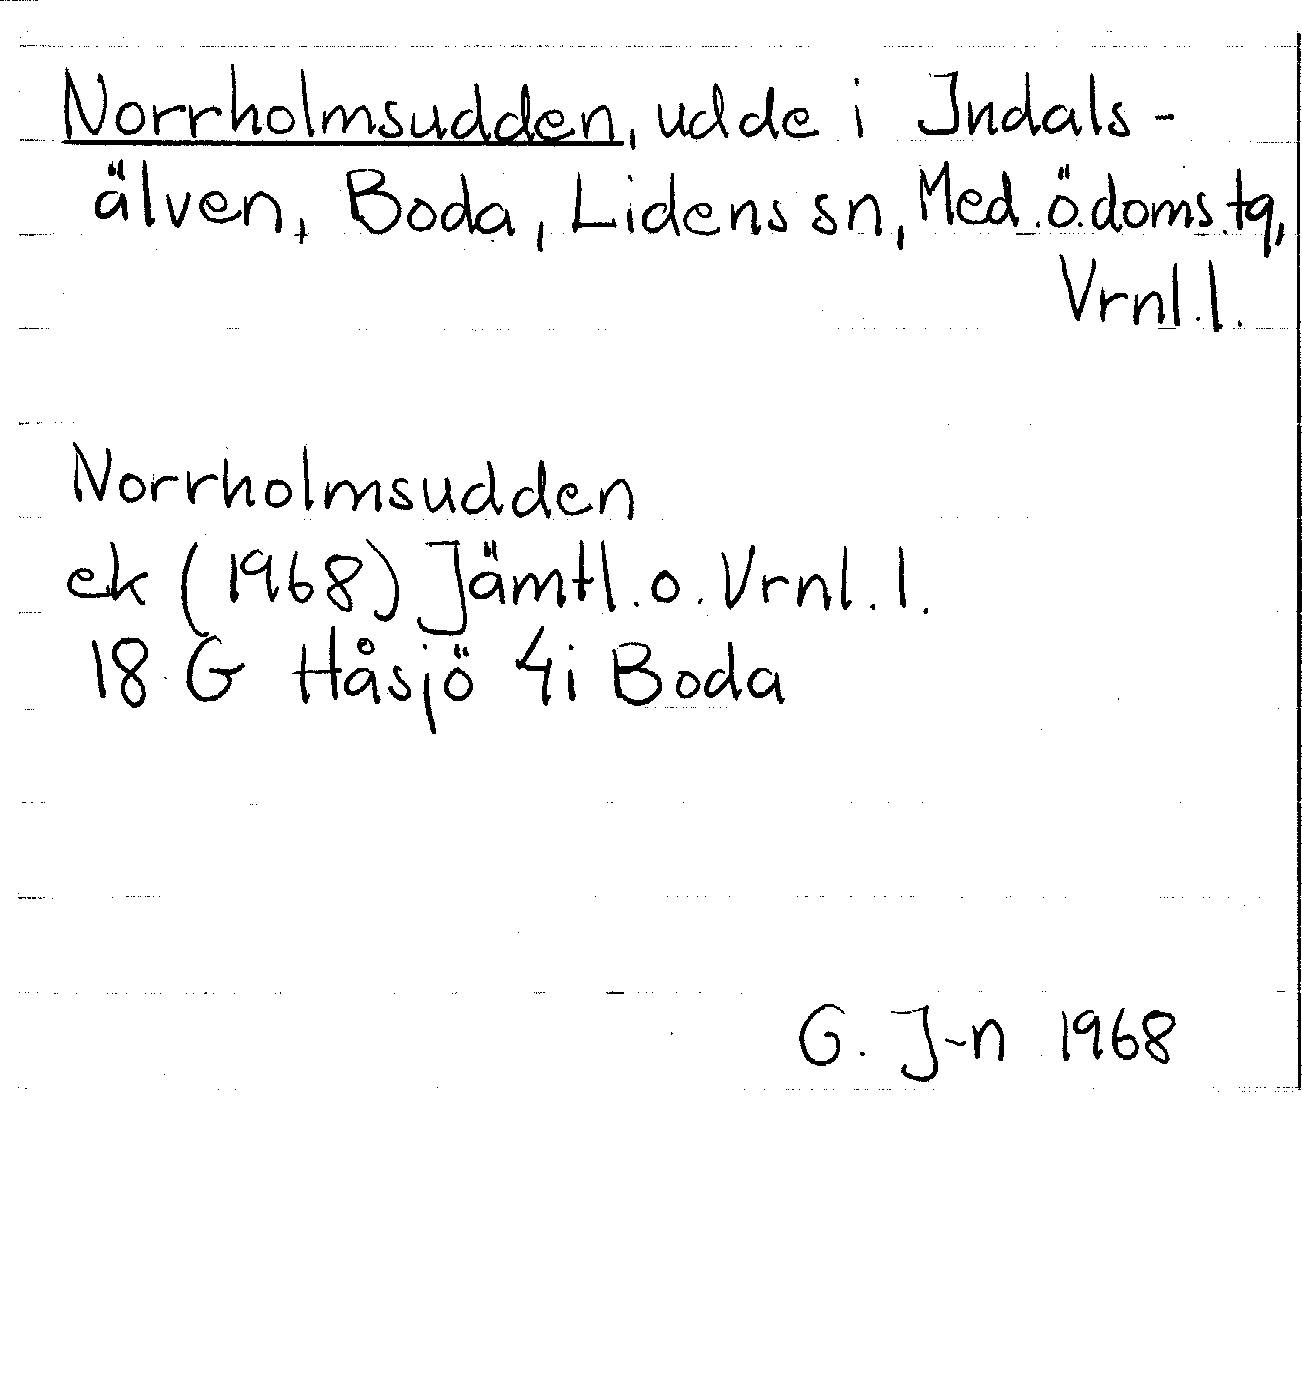 Norrholmsudden, udde i Indals-
älven, Boda, Lidens sn, Med.ö.doms.tg,
Vrnl.l.
Norrholmsudden
ek (1968) Jämtl.o.Vrnl.l.
18 G Håsjö 4i Boda
G. J-n 1968